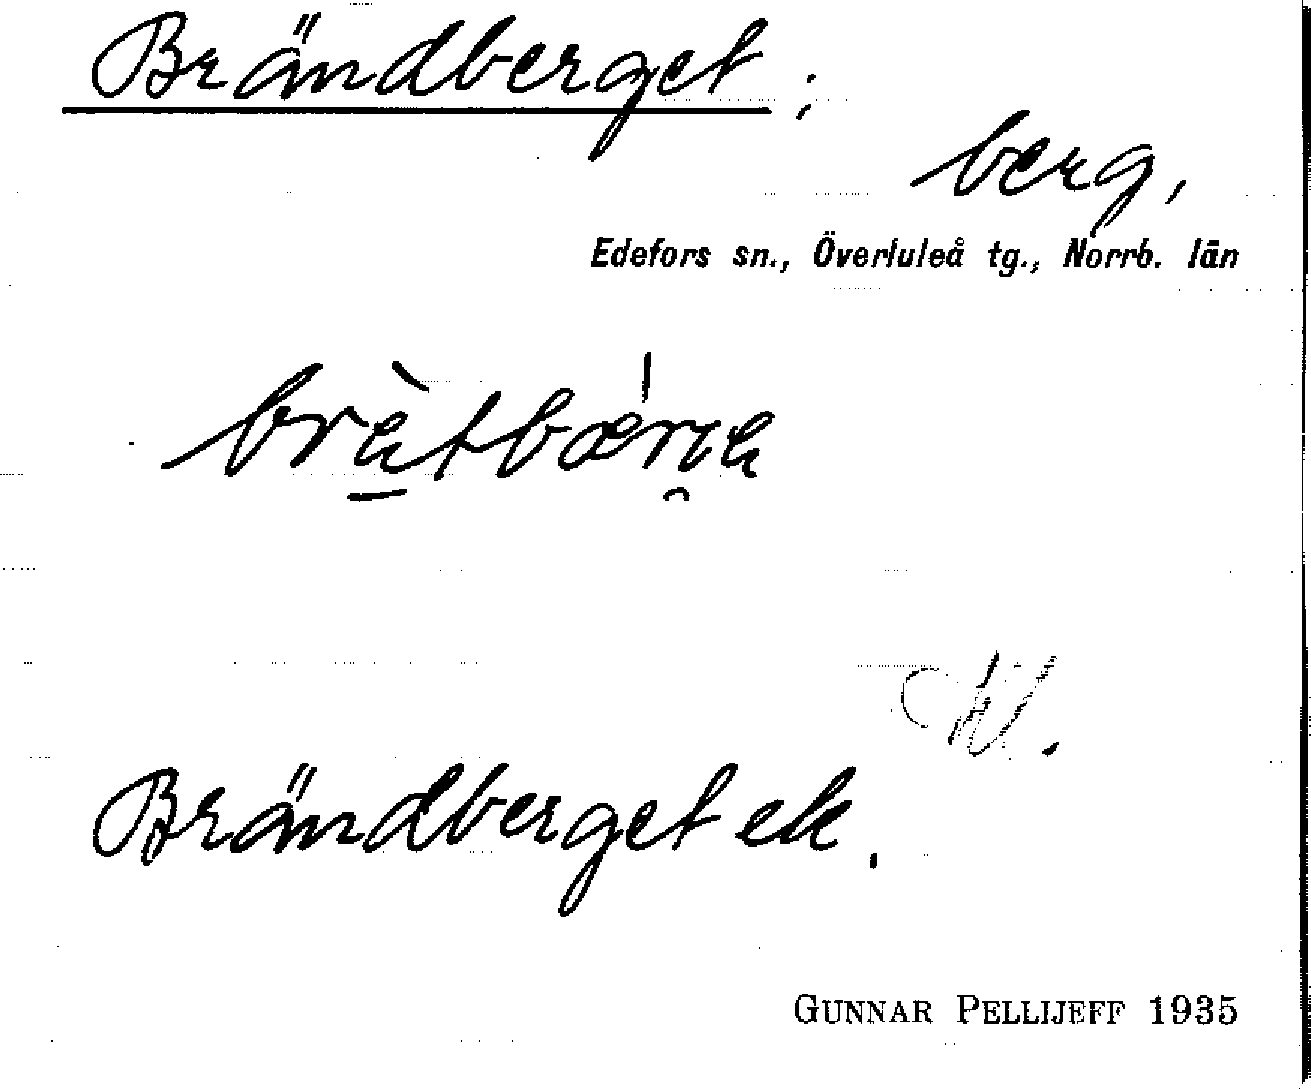 Brändberget;
berg,
Edefors sn., Överluleå tg., Norrb. län
Brändberget ek.
GUNNAR PELLIJEFF 1935